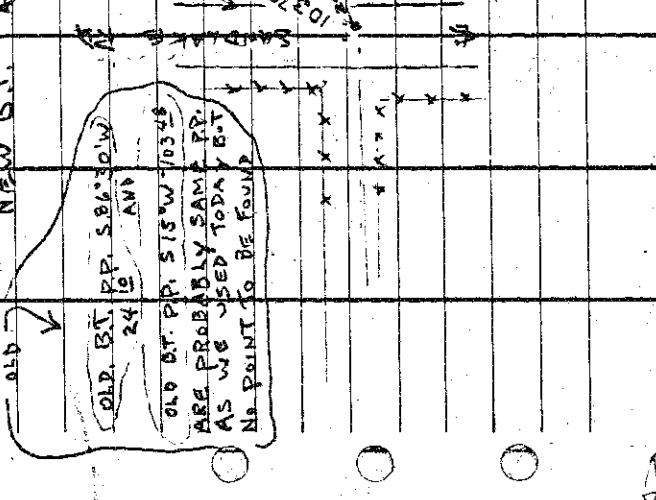 NEW B.T.
1037
OLD
OLD. B.T. P.P. S86°30'W
24 10 AND
OLD B.T. P.P. S15°W-103 48
ARE PROBABLY SAME P.P.
AS WE USED TODAY BUT
NO POINT TO BE FOUND